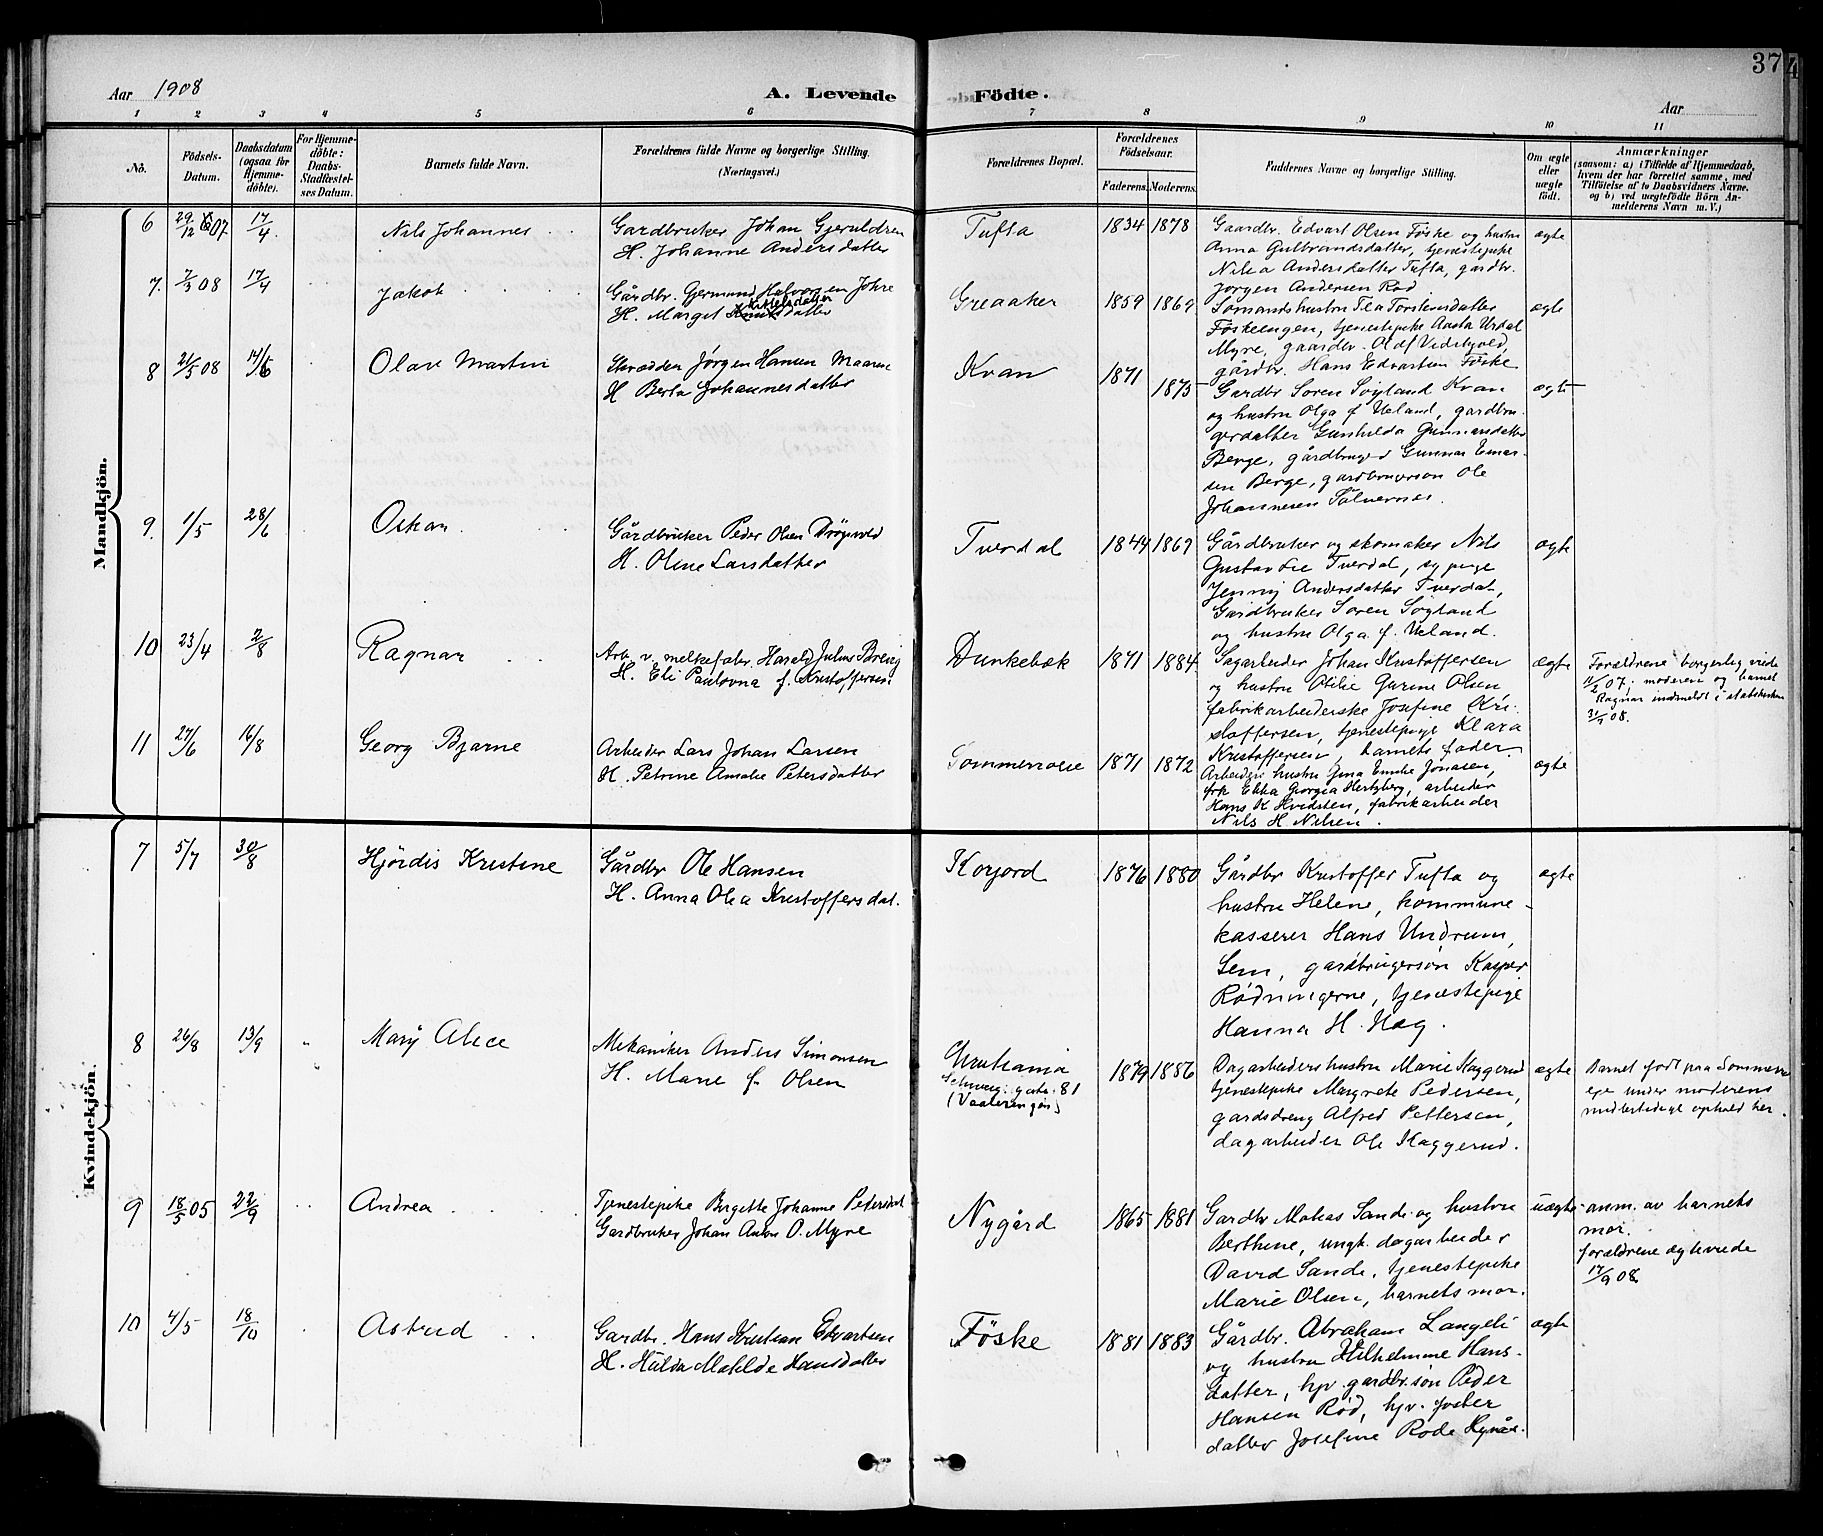 374
Aar 1908
A. Levende Födte.
Aar
1 2 3 4 5 6 7 8 9 10 11
No.
Födsels-
Datum.
Daabsdatum
(ogsaa for
Hjemme-
döbte).
For Hjemme-
döbte:
Daabs-
Stadfæstel-
ses Datum.
Barnets fulde Navn.
Forældrenes fulde Navne og borgerlige Stilling.
(Næringsvei.)
Forældrenes Bopæl.
Forældrenes
Födselsaar.
Faderens. Moderens.
Faddernes Navne og borgerlige Stilling.
Om ægte
eller
uægte
födt.
Anmærkninger
(saasom: a) i Tilfælde af Hjemmedaab,
hvem der har forrettet samme, med
Tilföielse af to Daabsvidners Navne,
og b) ved uægtefödte Börn An-
melderens Navn m. V.)
Mandkjön.
6 29/12 07 17/4 Nils Johannes
Gardbruker Johan Gjeruldsen
H. Johanne Andersdatter
Tufta 1834 1878
Gaardbr. Edvart Olsen Föske og hustru
Anna Gulbrandsdatter, tjenestepike
Nilea Andersdatter Tufta, gardbr.
Jörgen Andersen Röd
ægte
7. 7/3 08 17/4 Jakob
Gårdbr. Germund Halvorsen Johre
H. Marget Kittelsdatter
Greaaker 1859 1869
Sömands hustru Tea Torstensdatter
Föskeengen, tjenestepike Aasta Urdal
Myre, gaardbr. Olaf Vidskjold,
gårdbr. Hans Edvartsen Föske
ægte
8 21/5 08 14/6 Olav Martin
Skrædder Jørgen Hansen Maaren
H Berta Johannesdatter
Kvan 1871 1875
Gardbr Sören Söyland Kvan
og hustru Olga f Ueland, gardbru-
gerdatter Gunhilda Gunnarsdatter
Berge, gårdbruger Gunnar Einar-
sen Berge, gardbrugerson Ole
Johannesen Sölvernes.
ægte
9. 1/5 28/6 Oskar
Gårdbruker Peder Olsen
H. Oline Larsdatter
Tverdal 1844 1869
Gårdbruker og skomaker Nils
Gustav Lie Tverdal, sypige
Jenny Andersdatter Tverdal,
Gårdbruker Sören Söyland
og hustru Olga f. Ueland.
ægte
10 23/4 2/8 Ragnar
Arb. v. melkefabr. Harald Julius
H. Eli Paulovna f. Kristoffersen
Dunkebæk 1871 1884
Sagarbeider Johan Kristoffersen
og hustru Otilie Gurine Olsen,
fabrikarbeiderske Josefine Kri-
stoffersen, tjenestepige Klara
Kristoffersen, barnets fader.
ægte
Forældrene borgerlig viede
11/2 07; moderen og barnet
Ragnar indmeldt i statskirken
31/7 08.
11 27/6 16/8 Georg Bjarne
Arbeider Lars Johan Larsen
H. Petrine Amalie Petersdatter
Sommerroeie 1871 1872
Arbeiders hustru Gina Emilie Jonasen,
frk Ebba Georgia Hertzberg, arbeider
Hans K Hvidsten, fabrikarbeider
Nils H. Nilsen.
ægte
Kvindekjön.
7 5/7 30/8 Hjördis Kristine
Gårdbr Ole Hansen
H. Anna Olea Kristoffersdat.
Korjord 1876 1880
Gårdbr Kristoffer Tufta og
hustru Helene, kommune-
kasserer Hans Undrum,
Sem, gardbrugerson Kasper
Rödningerne, tjenestepige
Hanna H. Hag.
ægte
8 26/8 13/9 Mary Alice
Mekaniker Anders Simonsen
H. Marie f. Olsen
Christiania
Schweig. gate 81
(Vaalerengen)
1879 1886
Dagarbeiders hustru Marie Haggerud
tjenestepike Margrete Pedersen,
gardsdreng Alfred Pettersen,
dagarbeider Ole Haggerud.
ægte
Barnet født paa Sommerr-
eie under moderens
midlertidige ophold her.
9 18/5 05 22/9 Andrea
Tjenestepike Birgitte Johanne Pedersdat
Gardbruker Johan Anton O. Myre
Nygård 1865 1881
Gardbr Matias Sande og hustru
Berthine, ungk. dagarbeider
David Sande, tjenestepike
Marie Olsen, barnets mor.
uægte
anm. av barnets
mor.
forældrene ægteviede
17/9 08.
10 4/5 18/10 Astrid
Gardbr. Hans Kristian Edvartsen
H. Hulda Matilde Hansdatter
Föske 1881 1883
Gårdbr. Abraham Langeli
og hustru Vilhelmine Hans-
datter, hjv. gardbr.sön Peder
Hansen Röd, hjv. foster
datter Josefine Rode
ægte